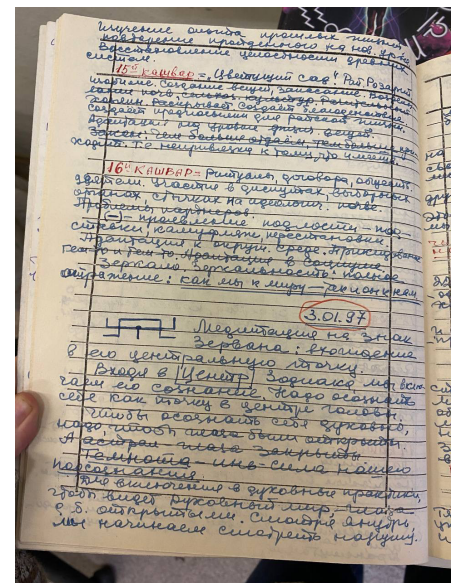 Изучение опыта прошлых жизней
повторение пройденного на нов. уровне
Восстановление целостности древних
систем.
15й кашвар = "Цветущий сад" Рат. Розарий
Создание вещей, запасание.
Раскрывает. Создаёт
создаёт предпосылки для райской жизни.
Адаптация
Закон: Чем больше отдаём, тем больше при-
ходит. Т.е. непривязка к тому, что имеем.
16й кашвар = Ритуалы, договора, обществ.
деятели. Участие в диспутах, выборных
органах, стычках на идеологич. почве.
Проблемы партнёров.
(–) = проявление подлости - под-
стройки, камуфляж, перестановки.
Адаптация к окруж. среде.
Адаптация в социуме
– Зеркало. Зеркальность: полное
отражение: как мы к миру – так он к нам
3.01.97
Медитация на знак
Зервана: вхождение
в его центральную точку.
Входя в Центр Зодиака мы вклю-
чаем его сознание. Надо осознать
себя как точку в центре головы.
Чтобы осознать себя духовно,
надо, чтоб глаза были открыты.
А астрал – глаза закрыты
Темнота – инь-сила нашего
подсознания.
Для включения в духовные практики,
чтоб видеть духовный мир, глаза
д.б. открытыми. Смотря внутрь,
мы начинаем смотреть наружу.